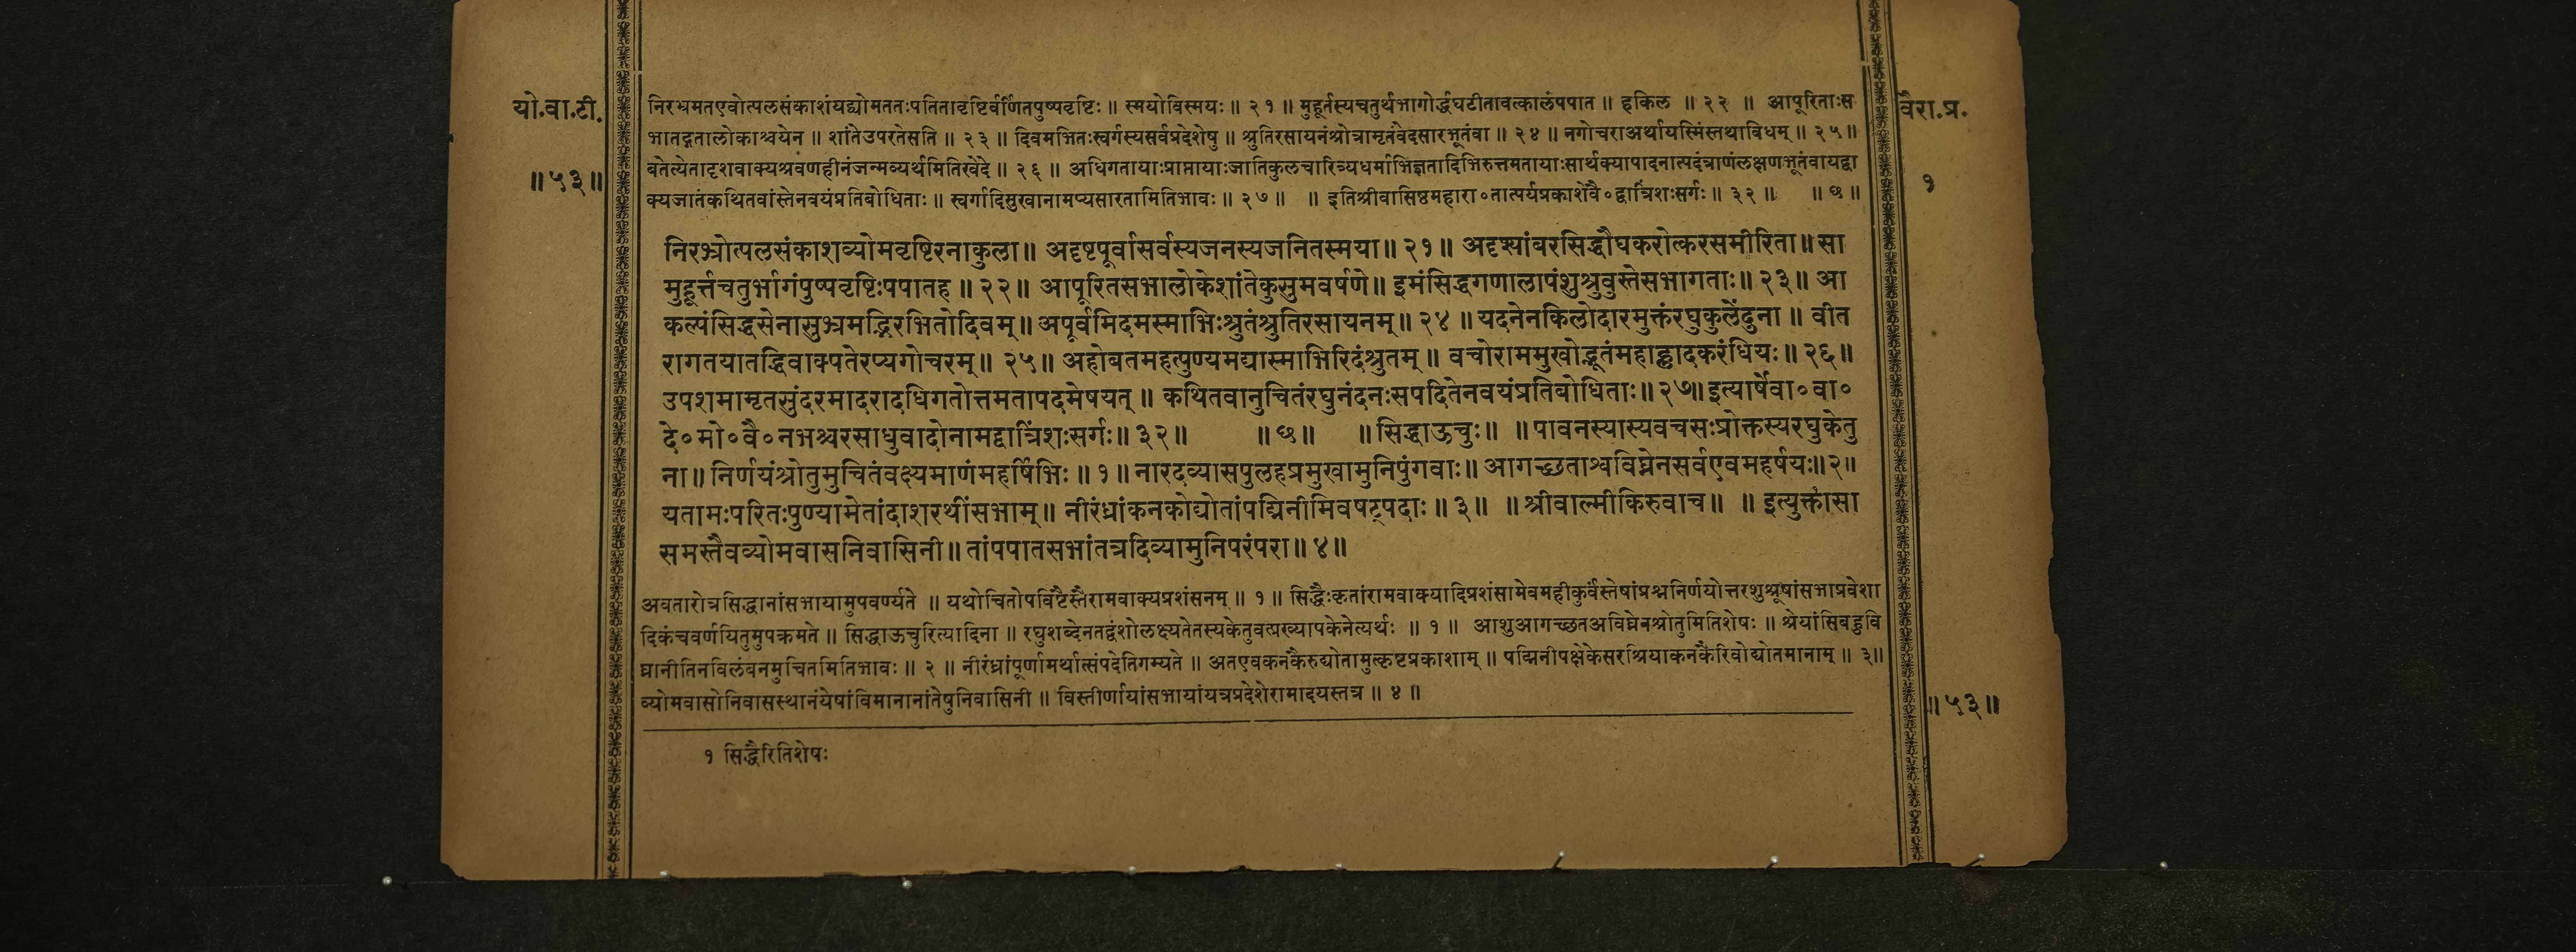 यो.वा.टी.
॥५३॥
निरभ्रमतएवोत्पलसंकाशंयद्व्योमततःपतितावृष्टिर्वर्णितपुष्पवृष्टिः ॥ स्मयोविस्मयः ॥ २१ ॥ मुहूर्तस्यचतुर्थभागोर्द्धघटीतावत्कालंपपात ॥ हकिल ॥ २२ ॥ आपूरिताःस
भातद्गतालोकाश्चयेन ॥ शांतेउपरतेसति ॥ २३ ॥ दिवमभितःस्वर्गस्यसर्वप्रदेशेषु ॥ श्रुतिरसायनंश्रोत्रामृतंवेदसारभूतंवा ॥ २४ ॥ नगोचराअर्थायस्मिंस्तथाविधम् ॥ २५ ॥
बतेत्येतादृशवाक्यश्रवणहीनंजन्मव्यर्थमितिखेदे ॥ २६ ॥ अधिगतायाःप्राप्तायाःजातिकुलचारित्र्यधर्माभिज्ञतादिभिरुत्तमतायाःसार्थक्यापादनात्पदंत्राणंलक्षणभूतंवायद्वा
क्यजातंकथितवांस्तेनवयंप्रतिबोधिताः ॥ स्वर्गादिसुखानामप्यसारतामितिभावः ॥ २७ ॥ ॥ इतिश्रीवासिष्ठमहारा०तात्पर्यप्रकाशेवै०द्वात्रिंशःसर्गः ॥ ३२ ॥ ॥ छ ॥
निरभ्रोत्पलसंकाशव्योमवृष्टिरनाकुला ॥ अदृष्टपूर्वासर्वस्यजनस्यजनितस्मया ॥ २१ ॥ अदृश्यांबरसिद्धौघकरोत्करसमीरिता ॥ सा
मुहूर्त्तचतुर्भागंपुष्पवृष्टिःपपातह ॥ २२ ॥ आपूरितसभालोकेशांतेकुसुमवर्षणे ॥ इमंसिद्धगणालापंशुश्रुवुस्तेसभागताः ॥ २३ ॥ आ
कल्पंसिद्धसेनासुभ्रमद्भिरभितोदिवम् ॥ अपूर्वमिदमस्माभिःश्रुतंश्रुतिरसायनम् ॥ २४ ॥ यदनेनकिलोदारमुक्तंरघुकुलेंदुना ॥ वीत
रागतयातद्धिवाक्पतेरप्यगोचरम् ॥ २५ ॥ अहोबतमहत्पुण्यमद्यास्माभिरिदंश्रुतम् ॥ वचोराममुखोद्भूतंमहाह्लादकरंधियः ॥ २६ ॥
उपशमामृतसुंदरमादरादधिगतोत्तमतापदमेषयत् ॥ कथितवानुचितंरघुनंदनःसपदितेनवयंप्रतिबोधिताः ॥ २७ ॥ इत्यार्षेवा०वा०
दे०मो०वै०नभश्चरसाधुवादोनामद्वात्रिंशःसर्गः ॥ ३२ ॥ ॥ छ ॥ ॥ सिद्धाऊचुः ॥ ॥ पावनस्यास्यवचसःप्रोक्तस्यरघुकेतु
ना ॥ निर्णयंश्रोतुमुचितंवक्ष्यमाणंमहर्षिभिः ॥ १ ॥ नारदव्यासपुलहप्रमुखामुनिपुंगवाः ॥ आगच्छताश्वविघ्नेनसर्वएवमहर्षयः ॥ २ ॥
यतामःपरितःपुण्यामेतांदाशरथींसभाम् ॥ नीरंध्रांकनकोद्योतांपद्मिनीमिवषट्पदाः ॥ ३ ॥ ॥ श्रीवाल्मीकिरुवाच ॥ ॥ इत्युक्त्तासा
समस्तैवव्योमवासनिवासिनी ॥ तांपपातसभांतत्रदिव्यामुनिपरंपरा ॥ ४ ॥
अवतारोत्रसिद्धानांसभायामुपवर्ण्यते ॥ यथोचितोपविष्टैस्तैरामवाक्यप्रशंसनम् ॥ १ ॥ सिद्धैःकृतांरामवाक्यादिप्रशंसामेवमहीकुर्वंस्तेषांप्रश्ननिर्णयोत्तरशुश्रूषांसभाप्रवेशा
दिकंचवर्णयितुमुपक्रमते ॥ सिद्धाऊचुरित्यादिना ॥ रघुशब्देनतद्वंशोलक्ष्यतेतस्यकेतुवत्प्रख्यापकेनेत्यर्थः ॥ १ ॥ आशुआगच्छतअविघ्नेनश्रोतुमितिशेषः ॥ श्रेयांसिबहुवि
घ्नानीतिनविलंबनमुचितमितिभावः ॥ २ ॥ नीरंध्रांपूर्णामर्थात्संपदेतिगम्यते ॥ अतएवकनकैरुद्योतामुत्कृष्टप्रकाशाम् ॥ पद्मिनीपक्षेकेसरश्रियाकनकैरिवोद्योतमानाम् ॥ ३ ॥
व्योमवासोनिवासस्थानंयेषांविमानानांतेषुनिवासिनी ॥ विस्तीर्णायांसभायांयत्रप्रदेशेरामादयस्तत्र ॥ ४ ॥
१ सिद्धैरितिशेषः
वैरा.प्र.
१
॥५३॥